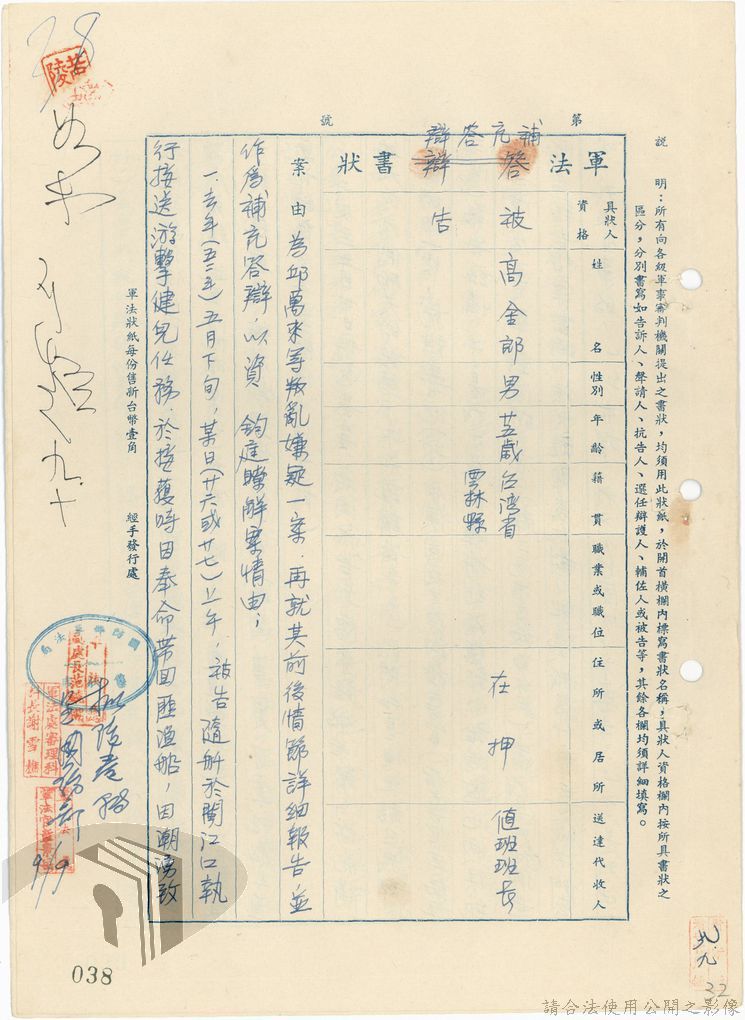 說　明：所有向各級軍事審判機關提出之書狀，均須用此狀紙，於開首橫欄內標寫書狀名稱，具狀人資格欄內按所具書狀之
區分，分別書寫如告訴人、聲請人、抗告人、選任辯護人、輔佐人或被告等，其餘各欄均須詳細填寫。
第　　號
補充答辯
軍法答辯書狀
具狀人
資格
姓名
性別
年齡
籍貫
職業或職位
住所或居所
送達代收人
被告
高金郎
男
廿五歲
台湾省
雲林縣
在押
值班班長
案由
為邱萬來等叛亂嫌疑一案．再就其前後情節詳細報告並
作爲補充答辯．以資　鈞庭瞭解案情由；
一．去年(五二年)五月下旬，某日(廿六或廿七)上午，被告隨船於閩江口執
行接送游擊健兒任務．於接獲時因奉命帶回匪漁船，因潮湧致
軍法狀紙每份售新台幣壹角
經手發行處
軍法處審理科
科長謝雪樵
9/9
九.十
九.九
28
32
038
請合法使用公開之影像